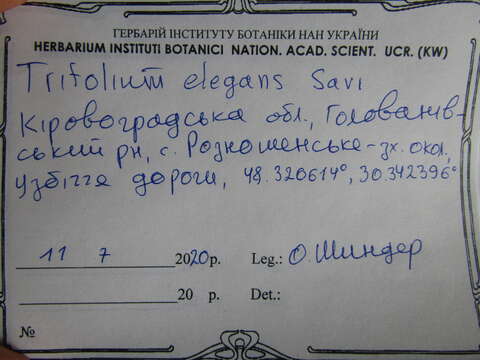 ГЕРБАРІЙ ІНСТИТУТУ БОТАНІКИ НАН УКРАЇНИ
HERBARIUM INSTITUTI BOTANICI NATION. ACAD. SCIENT. UCR. (KW)
Trifolium elegans Savi
Кіровоградська обл., Голованів-
ський рн, с. Розношенське - зх. окол.,
узбіччя дороги, 48.320614°, 30.342396°
11 7 2020р. Leg.: О. Шиндер
20 р. Det.:
№